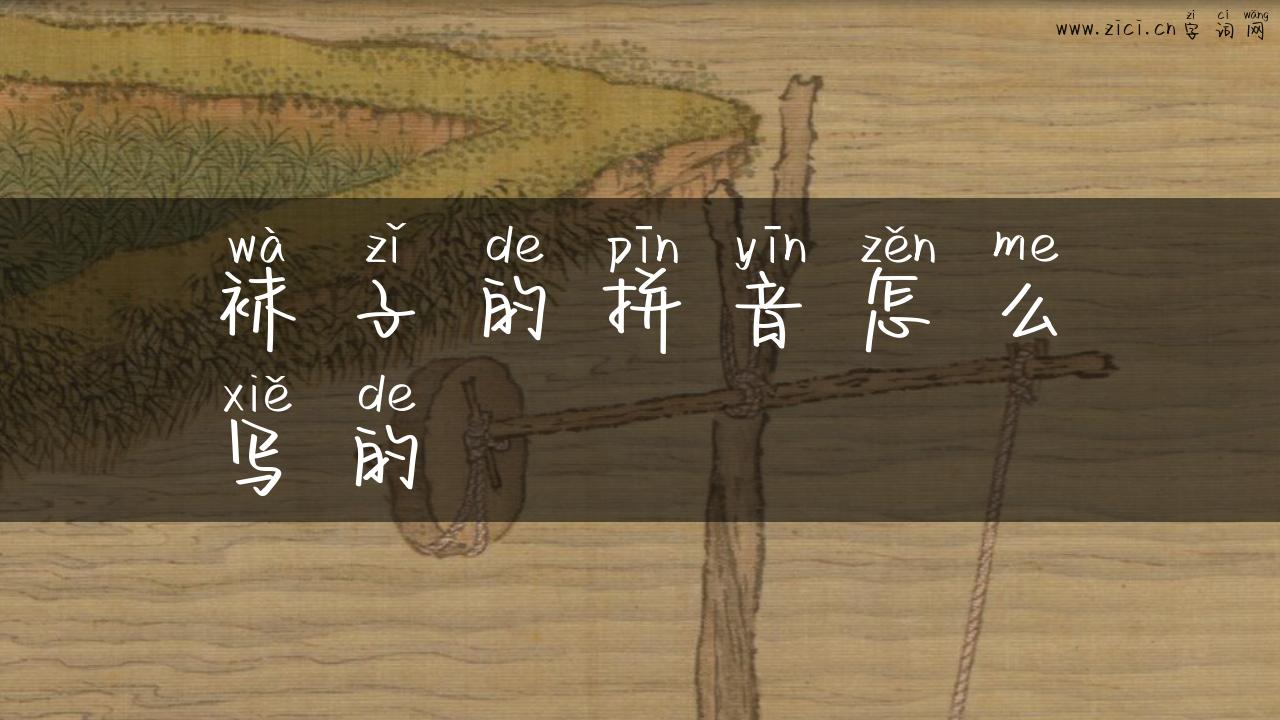 zì cí wǎng
www.zici.cn 字 词 网
wà zǐ de pīn yīn zěn me
袜 子 的 拼 音 怎 么
xiě de
写 的